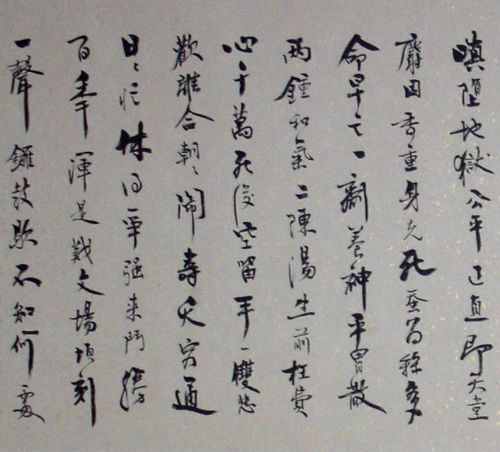 瞋墮地獄公平正直即天堂
麝因香重身先死蚕為絲多
命早亡一劑養神平胃散
两鍾和氣二陳湯生前枉費
心千萬死後空留手一雙悲
歡離合朝々鬧壽夭窮通
日々忙休得爭强来鬥勝
百年渾是戲文場頃刻
一聲鑼鼓歇不知何處